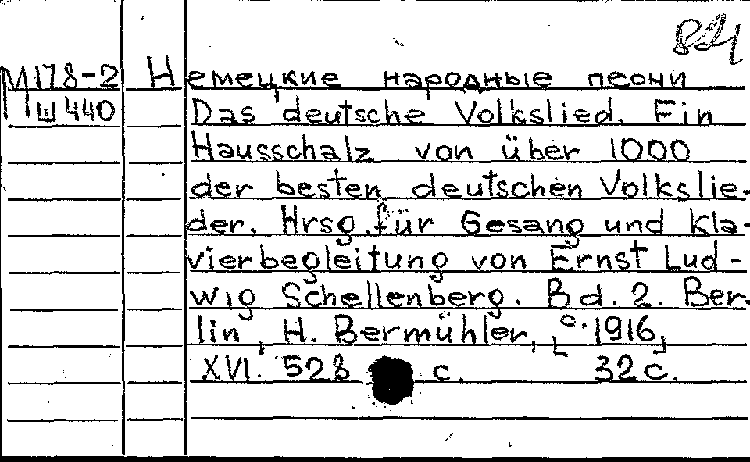 821
М178-2 Немецкие народные песни
Ш440 Das deutsche Volkslied. Ein
Hausschalz von über 1000
der besten deutschen Volkslie-
der. Hrsg. für Gesang und Kla-
vierbegleitung von Ernst Lud-
wig Schellenberg. Bd. 2. Ber-
lin, H. Bermühler, [c. 1916]
XVI. 528 c. 32 c.